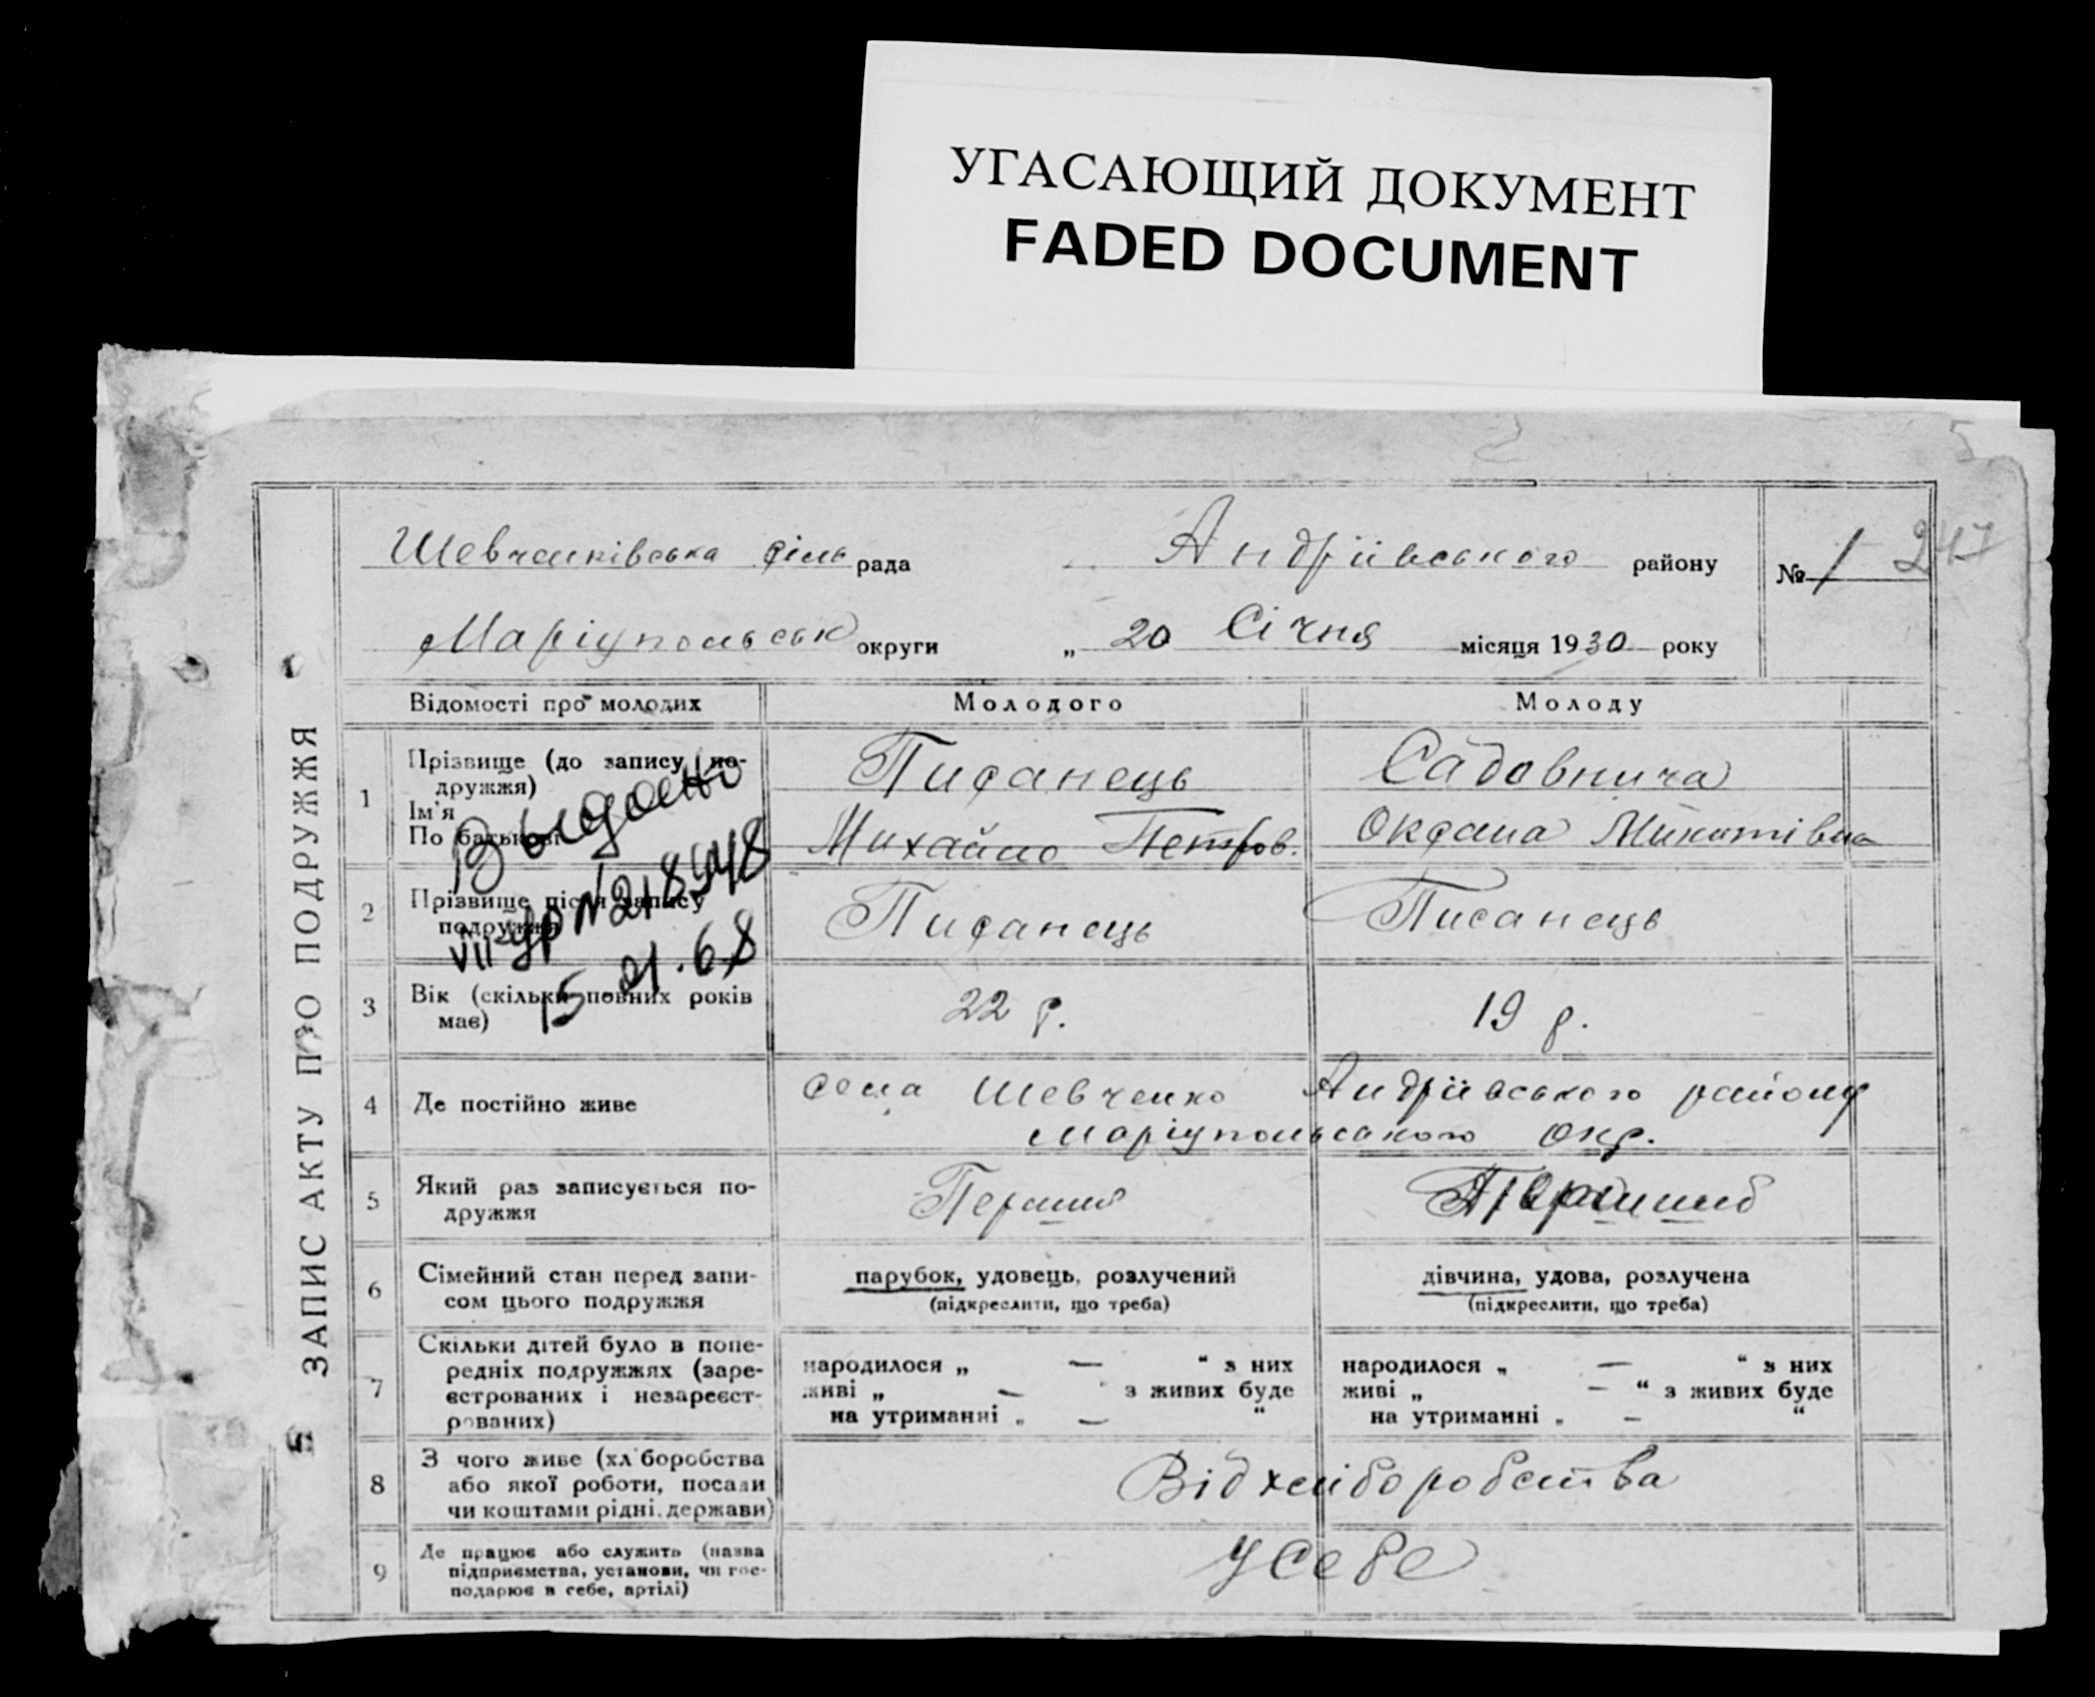 УГАСАЮЩИЙ ДОКУМЕНТ
FADED DOCUMENT
5
ЗАПИС АКТУ ПРО ПОДРУЖЖЯ
Шевченківська сіль рада Андріївського району № 1 247
Маріупольськ округи „ 20 Січня місяця 1930 року
Відомості про молодих Молодого Молоду
1 Прізвище (до запису по- Писанець Садовнича
дружжя)
Ім'я
По батькові Михайло Петров. Оксана Микитівна
Выдано
VII-УР №218948
15-01.68
2 Прізвище після запису Писанець Писанець
подружжя
3 Вік (скільки повних років 22 р. 19 р.
має)
4 Де постійно живе села Шевченко Андріївського району
Маріупольського Окр.
5 Який раз записується по- Перший Перший
дружжя
6 Сімейний стан перед запи- парубок, удовець, розлучений дівчина, удова, розлучена
сом цього подружжя (підкреслити, що треба) (підкреслити, що треба)
7 Скільки дітей було в попе-
редніх подружжях (заре- народилося „ — “ з них народилося „ — “ з них
єстрованих і незареєст- живі „ — “ з живих буде живі „ — “ з живих буде
рованих) на утриманні „ — “ на утриманні „ — “
8 З чого живе (хліборобства
або якої роботи, посади Від хліборобства
чи коштами рідні, держави)
9 Де працює або служить (назва
підприємства, установи, чи гос- У себе
подарює в себе, артілі)